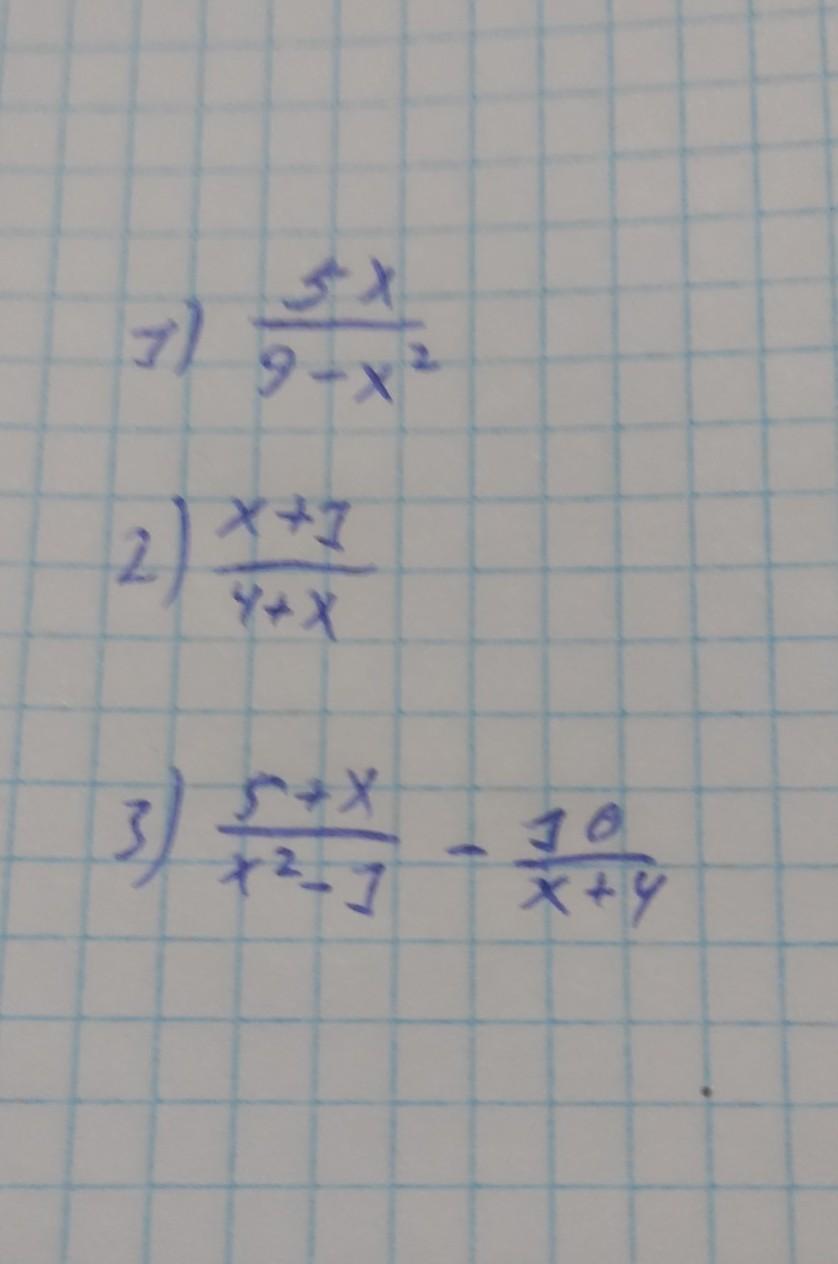 1) 5x/(9-x²)
2) (x+1)/(4+x)
3) (5+x)/(x²-1) - 10/(x+4)